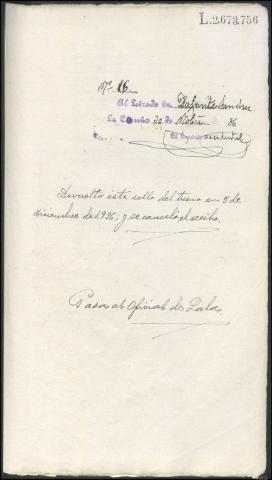 L.2.673.756
Nº 16
Al Letrado Sr. Lafuente Sanchez
La Coruña 20 de Nobre 36
El Secretario accidental
Devuelto este rollo del turno en 5 de
diciembre de 1.936; y se canceló el recibo.
Pasa al Oficial de Sala.